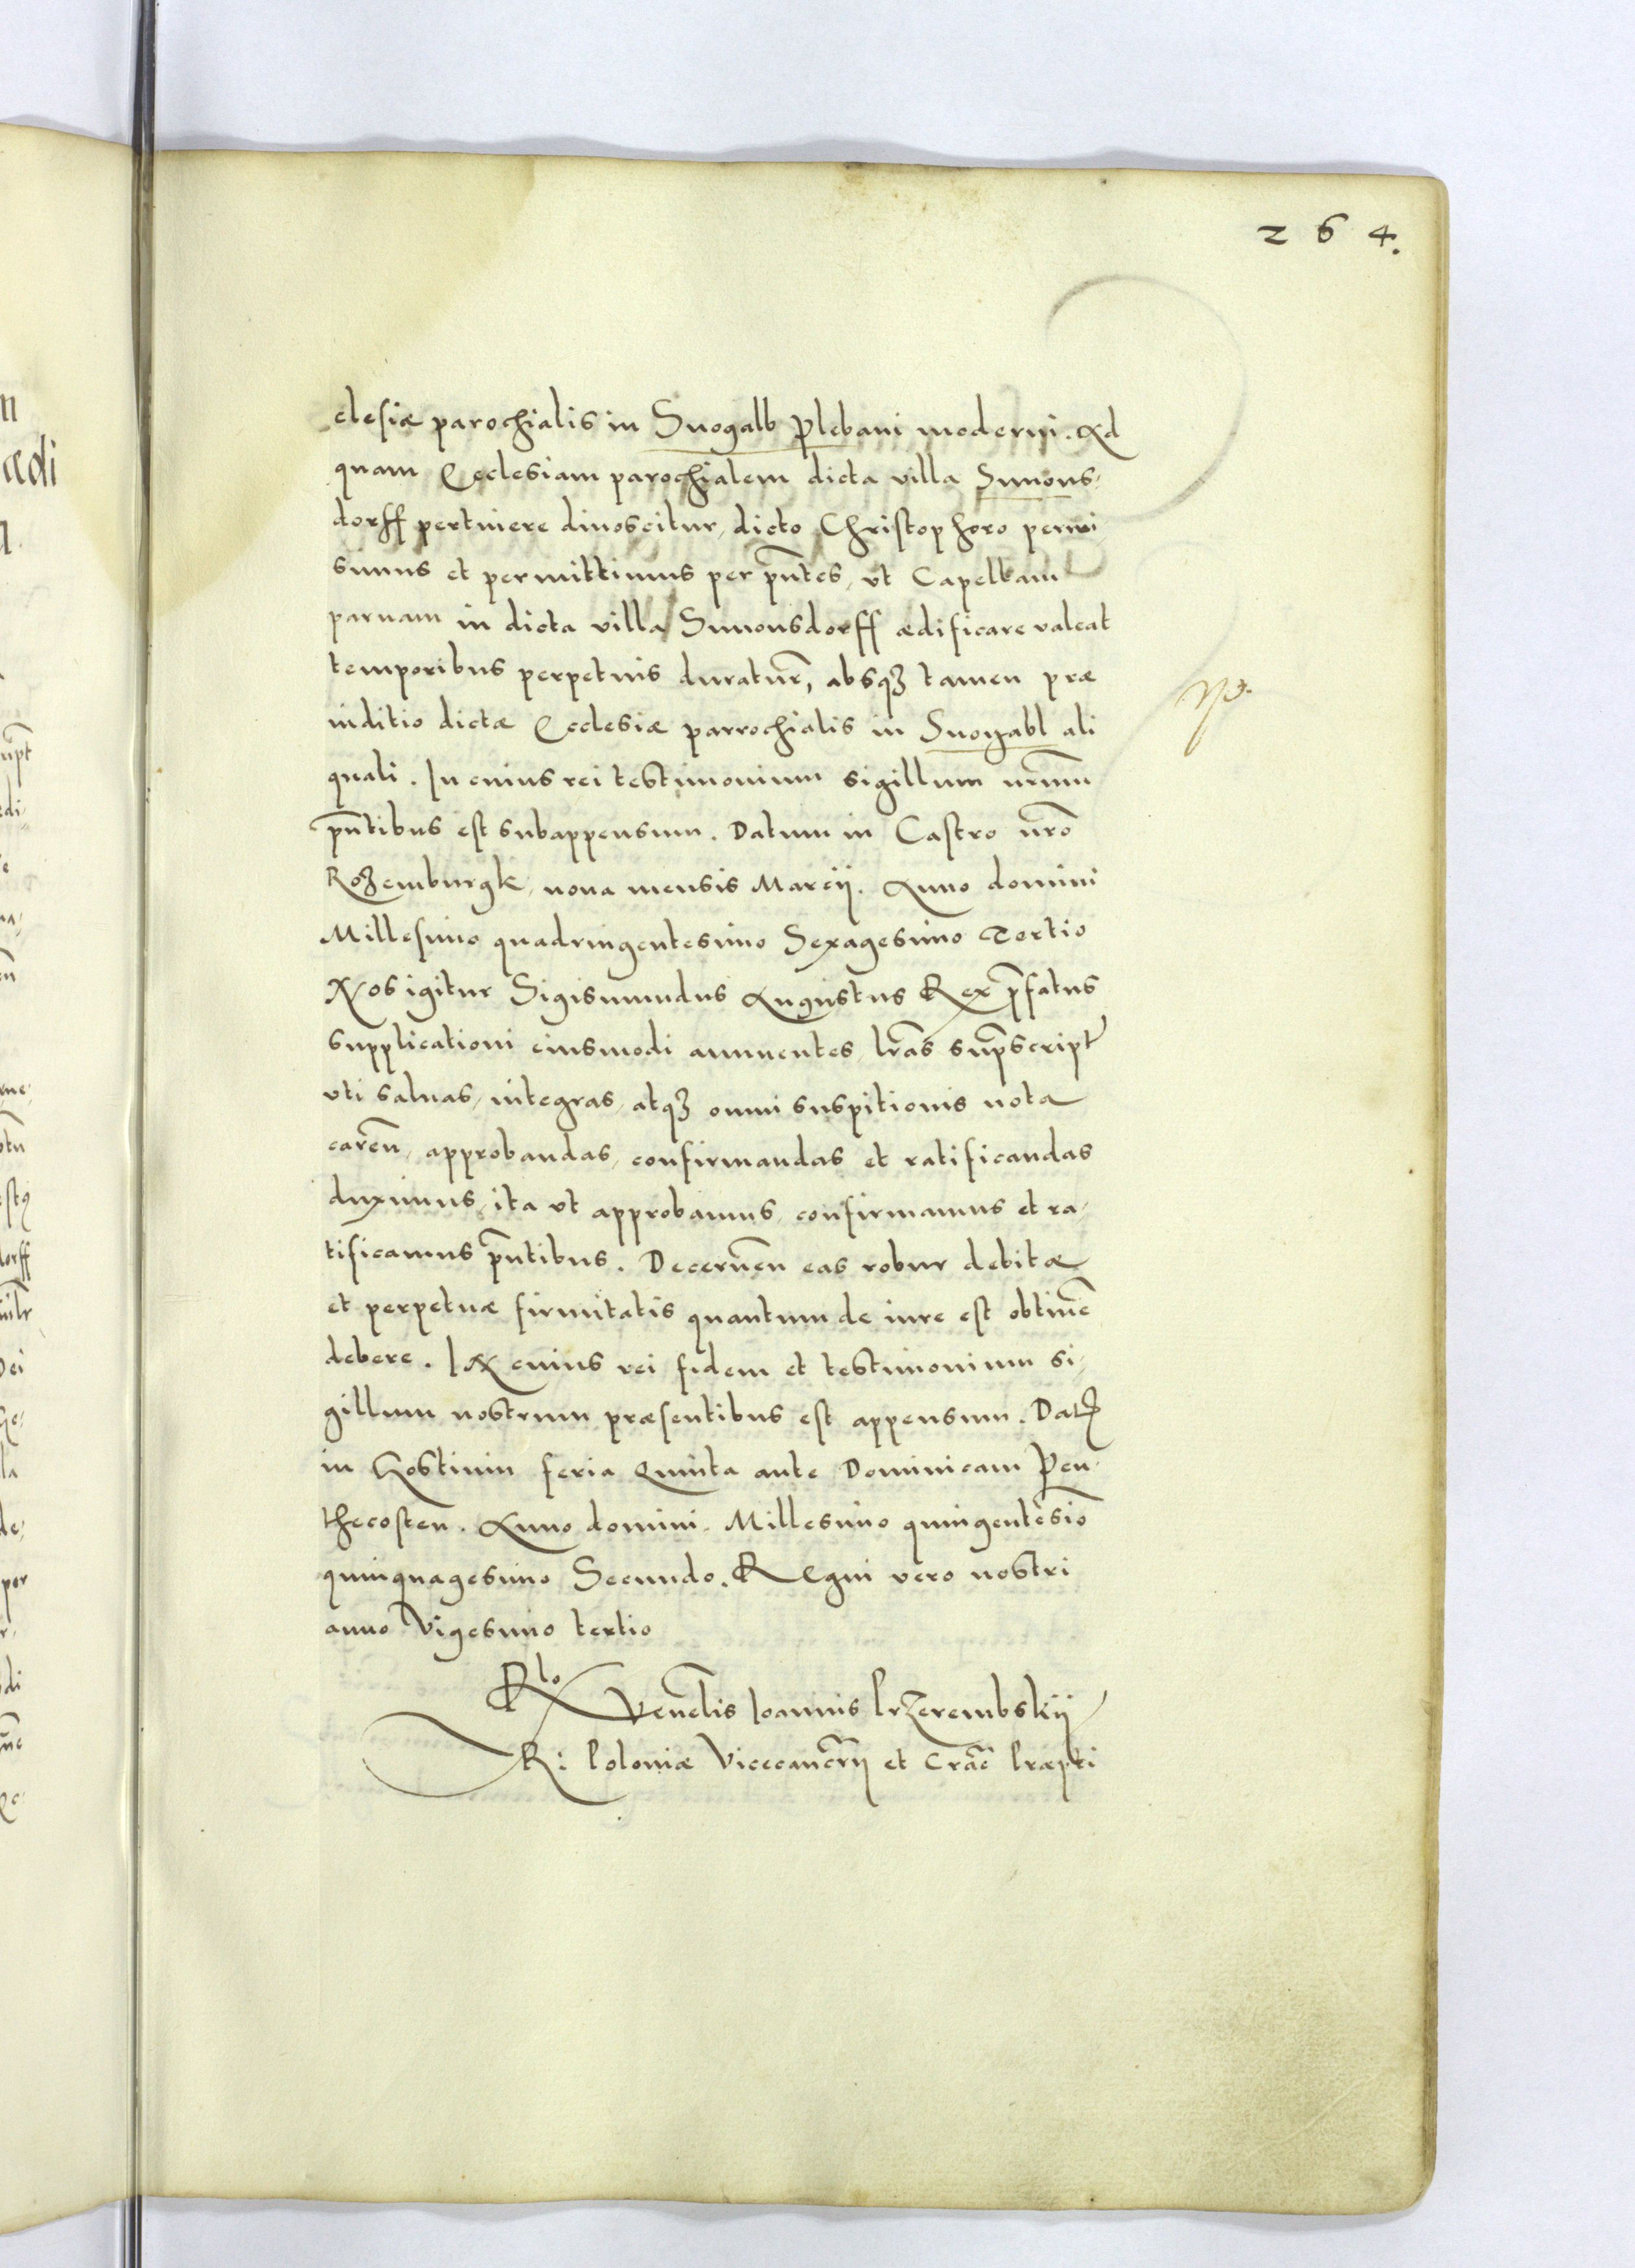 264.
clesiæ parochialis in Snogalb Plebani moderni. Ad
quam Ecclesiam parochialem dicta villa Simons-
dorff pertinere dinoscitur, dicto Christophoro permi
simus et permittimus per pñtes, vt Capellam
paruam in dicta villa Simonsdorff ædificare valeat
temporibus perpetuis duratur̃, absqꝫ tamen præ
iuditio dictæ Ecclesiæ parrochialis in Snogabl ali
quali. In cuius rei testimonium sigillum nr̃um
pñtibus est subappensum. Datum in Castro nrõ
Roꝫemburgk, nona mensis Marcij. Anno domini
Millesimo quadringentesimo Sexagesimo Tertio
Nos igitur Sigismundus Augustus Rex p̃fatus
supplicationi eiusmodi annuentes, lr̃as sup̃script̃
vti saluas, integras, atqꝫ omni suspitionis nota
careñ, approbandas, confirmandas et ratificandas
duximus, ita vt approbamus, confirmamus et ra-
tificamus p̃ntibus. Decerneñ eas robur debitæ
et perpetuæ firmitatis quantum de iure est obtinẽ
debere. IN cuius rei fidem et testimonium si-
gillum nostrum præsentibus est appensum. Dat̃
in Gostinin feria Quinta ante Dominicam Pen-
thecosten. Anno domini. Millesimo quingentesiõ
quinquagesimo Secundo. REgni vero nostri
anno Vigesimo tertio
Rlo
Veneñlis Ioannis Prꝫerembskij
R: Poloniæ Vicecancr̃ij et Crac̃ Præpti